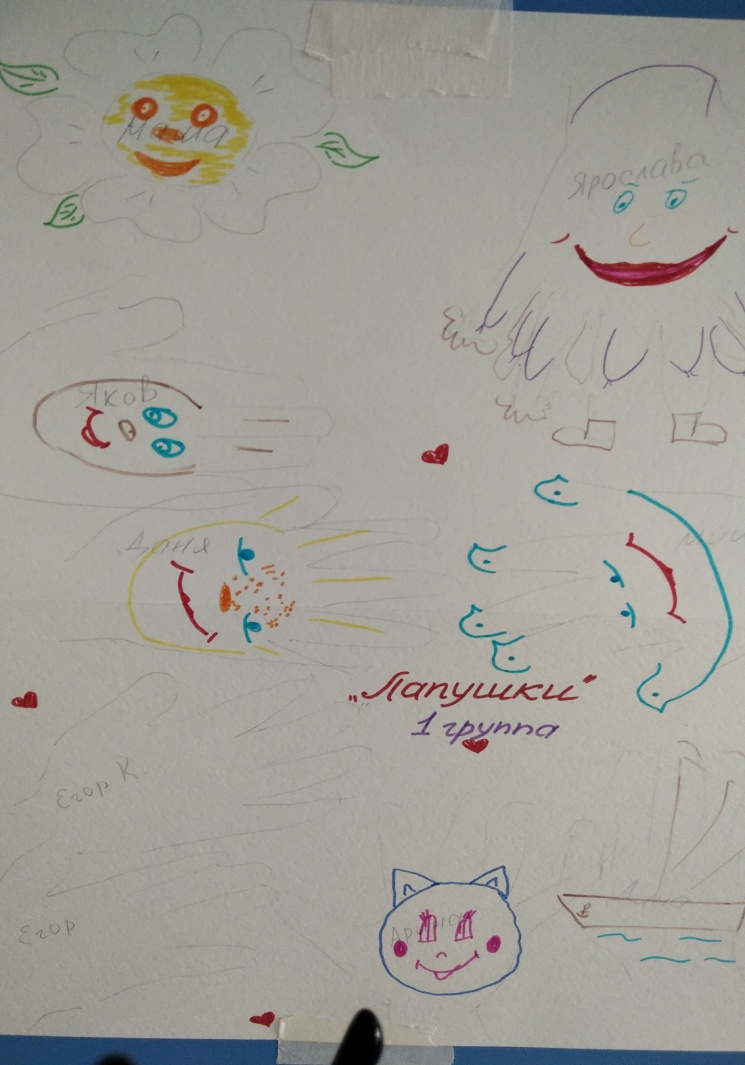 Мама
Ярослава
Яков
Даня
„Лапушки"
1 группа
Егор К.
Егор